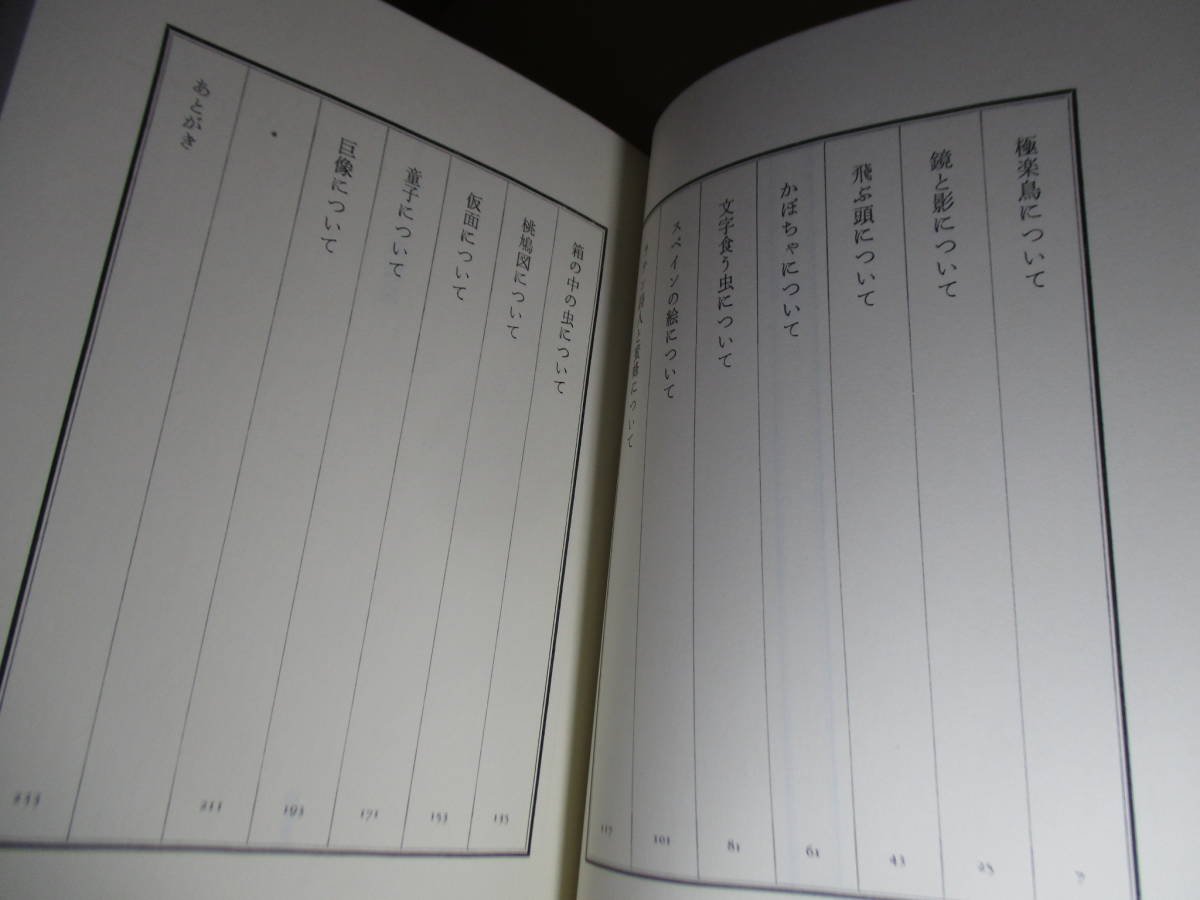 極楽鳥について
7
鏡と影について
25
飛ぶ頭について
43
かぼちゃについて
61
文字食う虫について
81
スペインの絵について
101
ラテン詩人と蜜蜂について
117
箱の中の虫について
135
桃鳩図について
153
仮面について
171
童子について
193
巨像について
211
*
あとがき
233